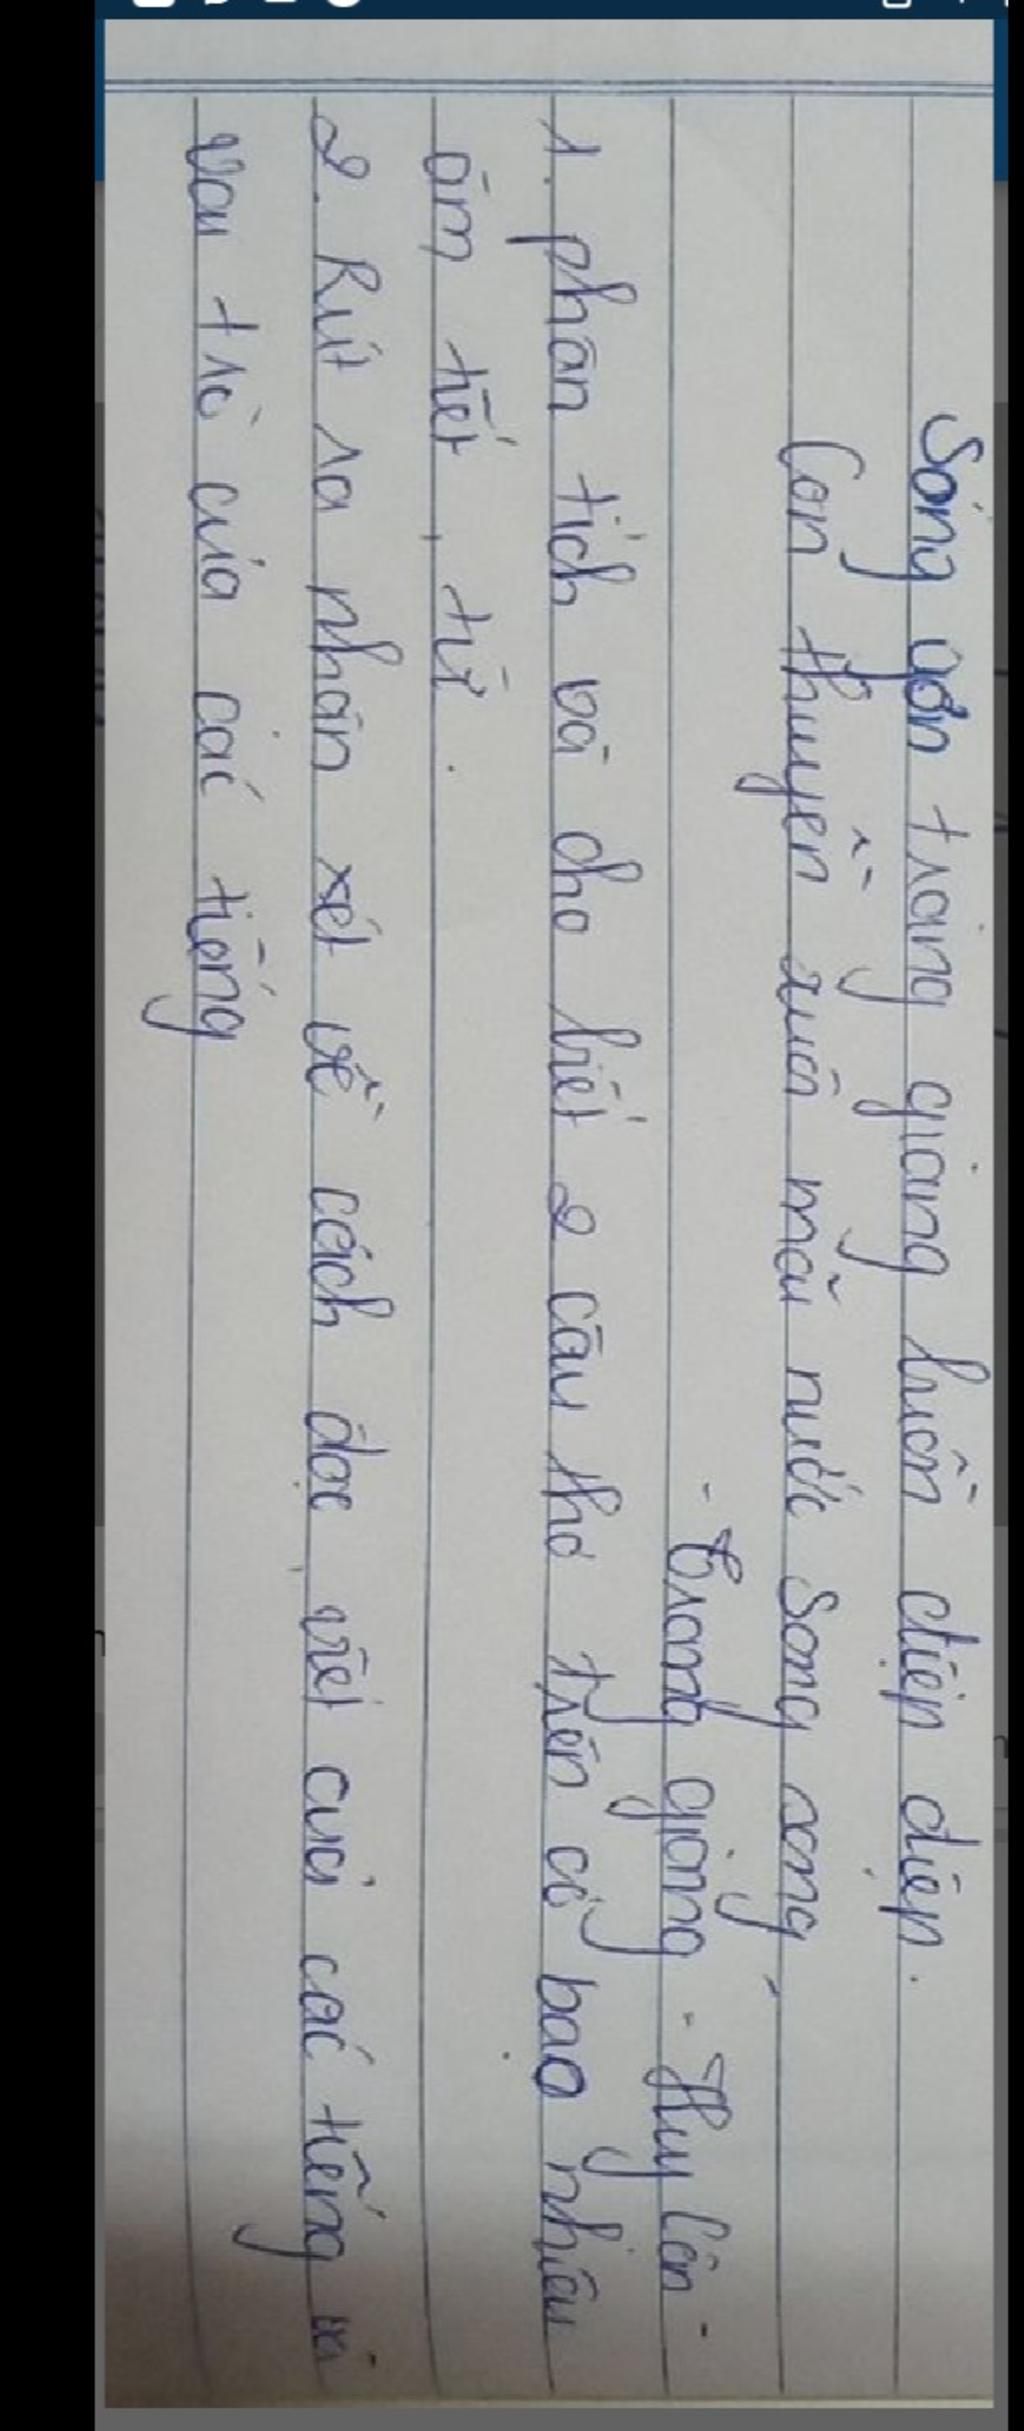 Sóng gợn tràng giang buồn điệp điệp.
Con thuyền xuôi mái nước song song
- Tràng giang - Huy Cận -
1. phân tích và cho biết 2 câu thơ trên có bao nhiêu
âm tiết, từ.
2. Rút ra nhận xét về cách đọc viết của các tiếng và
vai trò của các tiếng